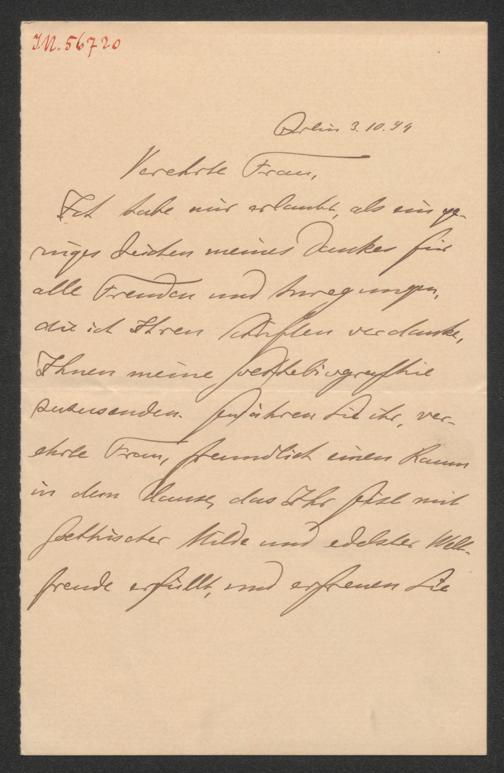 IN. 56720
Berlin 3.10.99
Verehrte Frau,
Ich habe mir erlaubt, als ein ge-
ringes Zeichen meines Dankes für
alle Freuden und Anregungen,
die ich Ihren Schriften verdanke,
Ihnen meine Goethebiografie
zuzusenden. Gewähren Sie ihr, ver-
ehrte Frau, freundlich einen Raum
in dem Hause, das Ihr Geist mit
Goethischer Milde und edelster Welt-
freude erfüllt, und erfreuen Sie